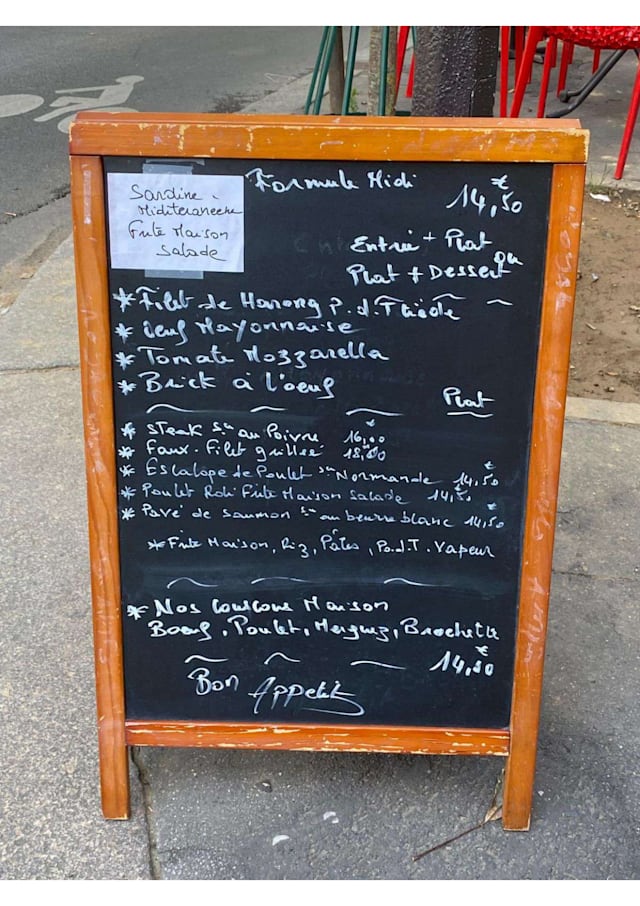 Sardine
Mediteraneene
Frite Maison
Salade
Formule Midi
14,50 €
Entrée + Plat
ou
Plat + Dessert
* Filet de Hareng P.d.T tiède
* Oeuf Mayonnaise
* Tomate Mozzarella
* Brick à l'oeuf
Plat
* Steak sce au Poivre 16,00 €
* Faux-filet grillée
* Escalope de Poulet sce Normande 14,50 €
* Poulet Roti Frite Maison Salade 14,50 €
* Pavé de saumon sce au beurre blanc 14,50 €
* Frite Maison, Riz, Pâtes, P.d.T. Vapeur
* Nos couscous Maison
Boeuf, Poulet, Merguez, Brochette
14,50 €
Bon Appetit